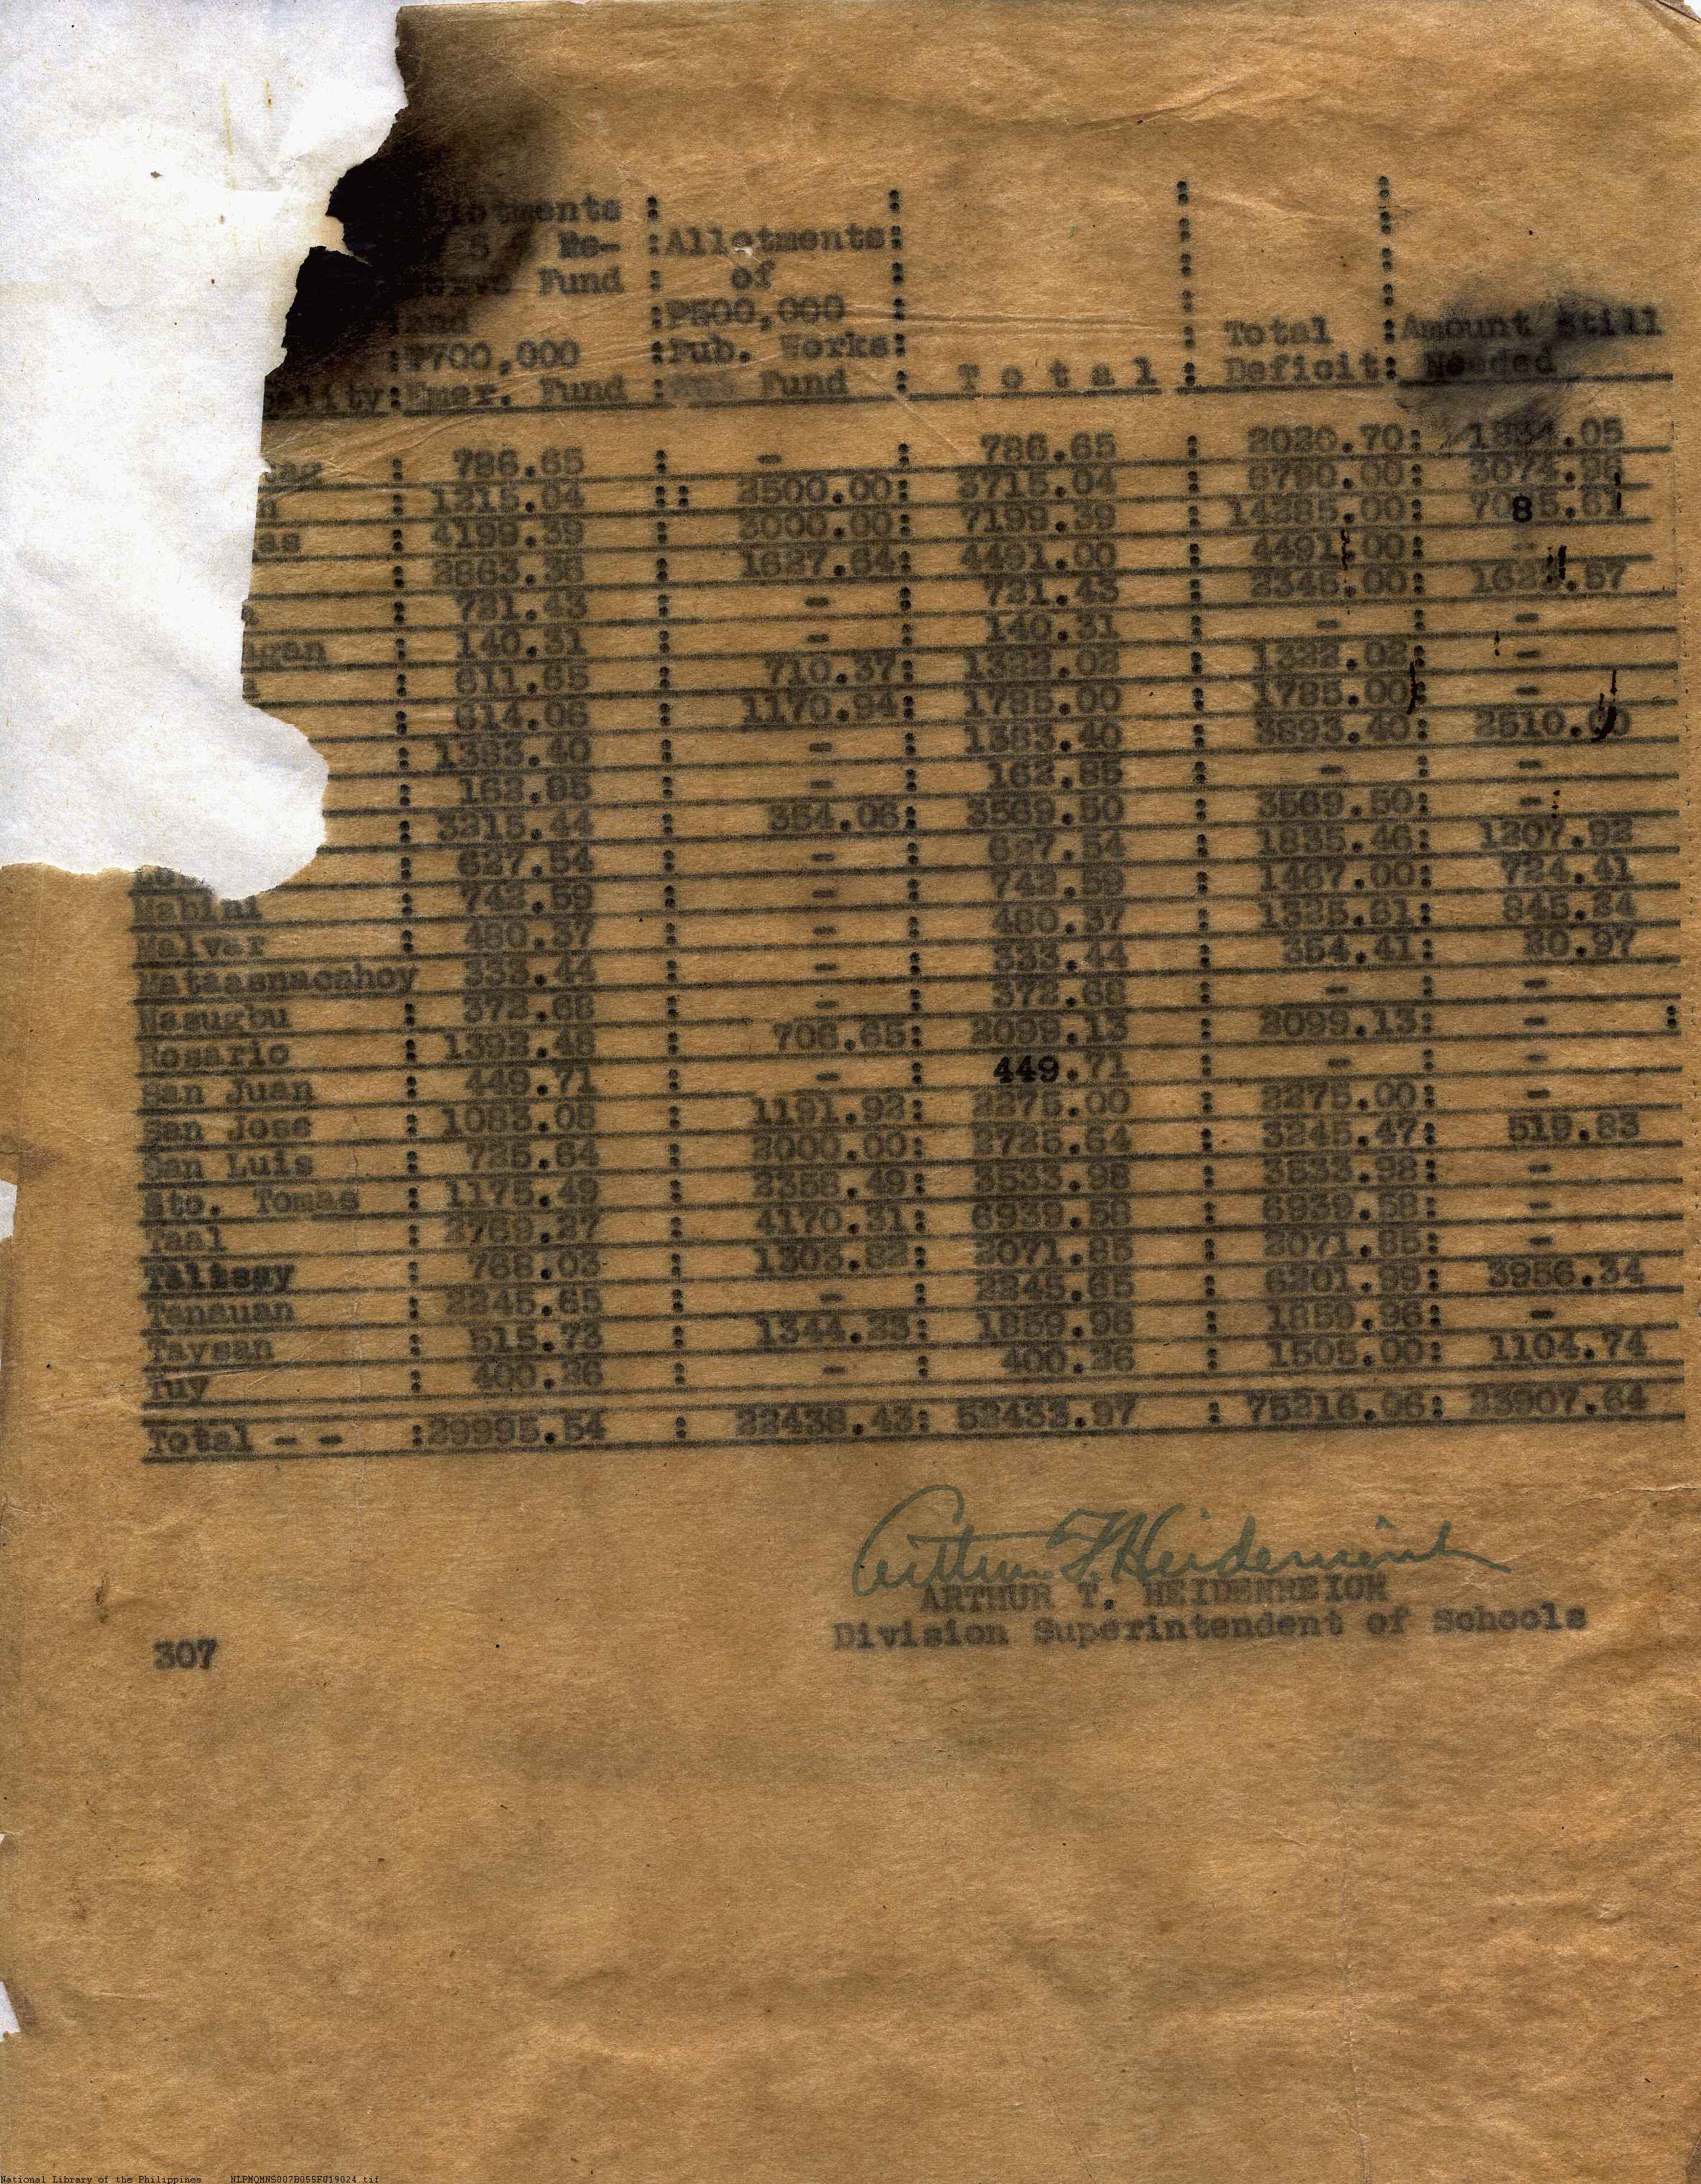 lotments :
5 % Re- :Allotments:
erve Fund : of :
and :₱500,000 : Total :Amount Still
:₱700,000 :Pub. Works: Deficit: Needed
ality:Emer. Fund : Fund : T o t a l :
: 786.65 : - : 786.65 : 2020.70:
: 1215.04 :: 2500.00: 3715.04 : 6790.00: 3074.96
as : 4199.39 : 3000.00: 7199.39 : 14285.00: 7085.61
: 2863.36 : 1627.64: 4491.00 : 4491.00: -
: 721.43 : - : 721.43 : 2345.00: .57
gan : 140.31 : - : 140.31 : - : -
: 611.65 : 710.37: 1322.02 : 1322.02: -
: 614.06 : 1170.94: 1785.00 : 1785.00: -
: 1383.40 : - : 1383.40 : 3893.40: 2510.00
: 162.85 : - : 162.85 : - : -
: 3215.44 : 354.06: 3569.50 : 3569.50: -
: 627.54 : - : 627.54 : 1835.46: 1207.92
Mabini : 742.59 : - : 742.59 : 1467.00: 724.41
Malvar : 480.37 : - : 480.37 : 1325.61: 845.24
Mataasnacahoy 333.44 : - : 333.44 : 354.41: 20.97
Nasugbu : 372.68 : - : 372.68 : - : -
Rosario : 1392.48 : 706.65: 2099.13 : 2099.13: - :
San Juan : 449.71 : - : 449.71 : - : -
San Jose : 1083.08 : 1191.92: 2275.00 : 2275.00: -
San Luis : 725.64 : 2000.00: 2725.64 : 3245.47: 519.83
Sto. Tomas : 1175.49 : 2358.49: 3533.98 : 3533.98: -
Taal : 2769.27 : 4170.31: 6939.58 : 6939.58: -
Talisay : 768.03 : 1303.82: 2071.85 : 2071.85: -
Tanauan : 2245.65 : - : 2245.65 : 6201.99: 3956.34
Taysan : 515.73 : 1344.23: 1859.96 : 1859.96: -
Tuy : 400.26 : - : 400.26 : 1505.00: 1104.74
Total - - :29995.54 : 22438.43: 52433.97 : 75216.06: 23907.64
Arthur T. Heidenreich
ARTHUR T. HEIDENREICH
Division Superintendent of Schools
307
National Library of the Philippines NLPMQMNS007B055F019024.tif